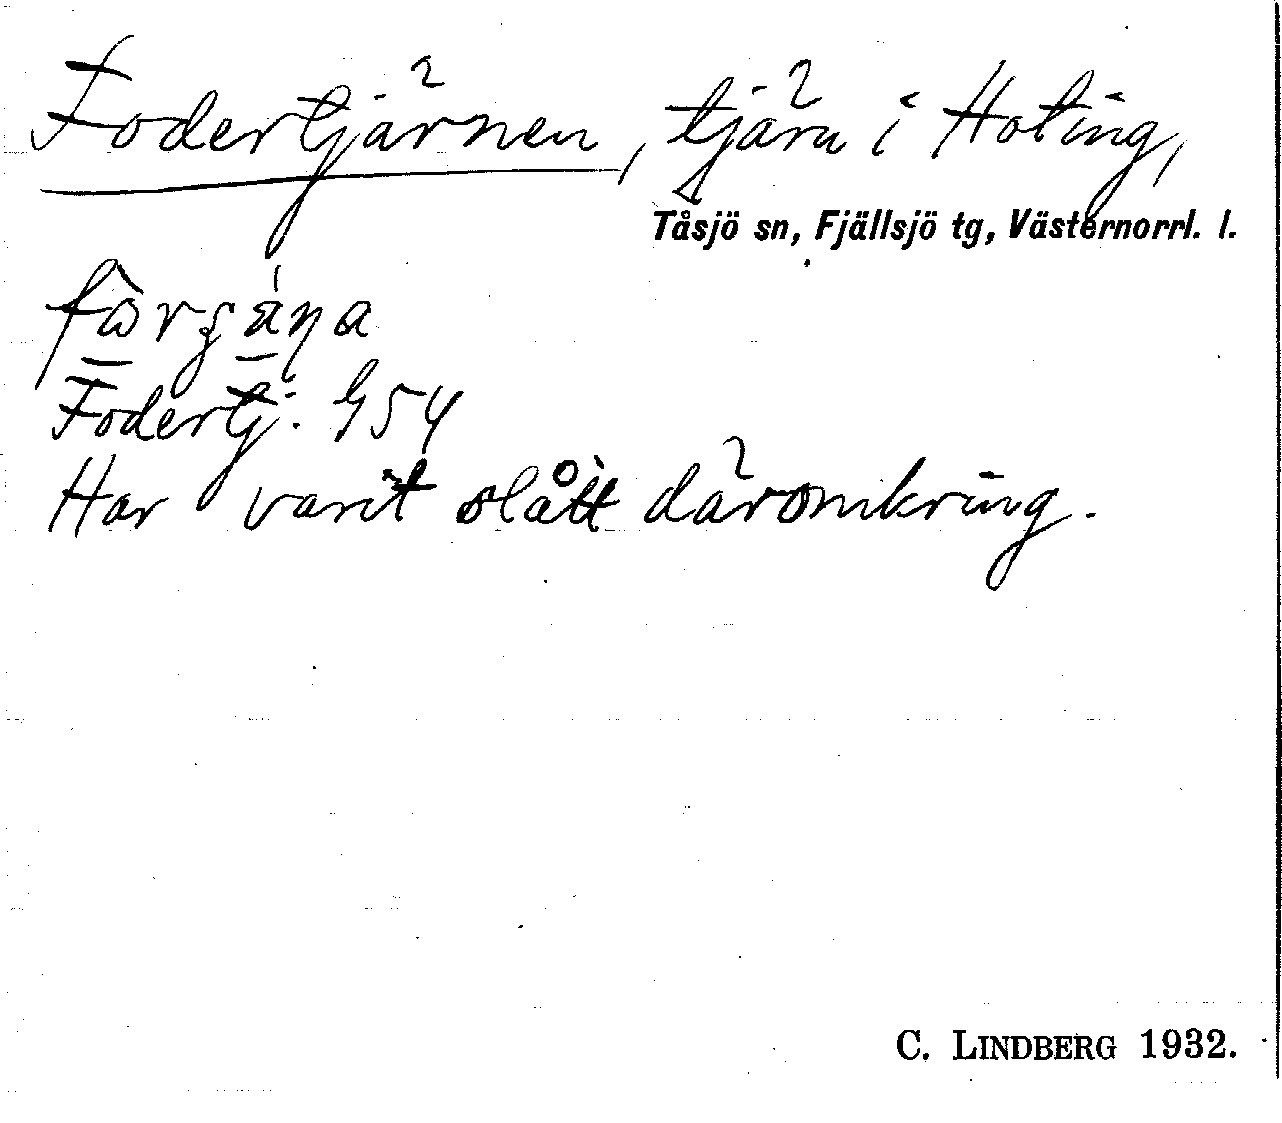 Fodertjärnen, tjärn i Hoting,
Tåsjö sn, Fjällsjö tg, Västernorrl. l.
Fodertj. G54
Har varit slått däromkring.
C. LINDBERG 1932.